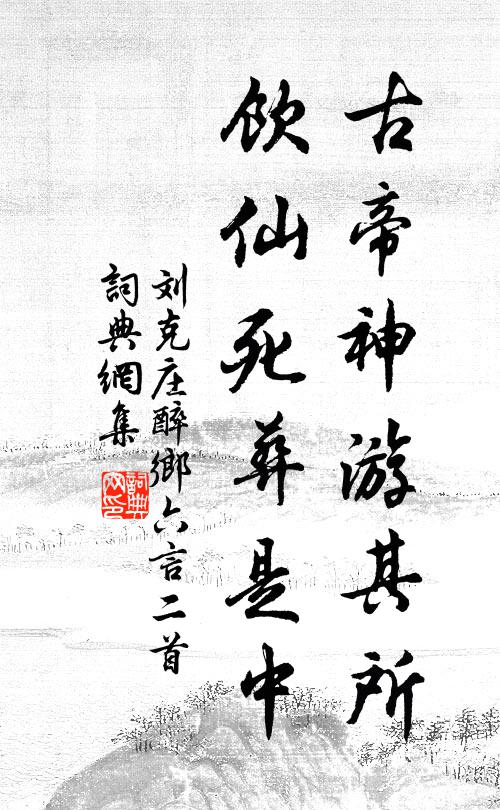 古帝神游其所
飲仙死葬是中
刘克庄醉鄉六言二首
詞典網集
詞典網印